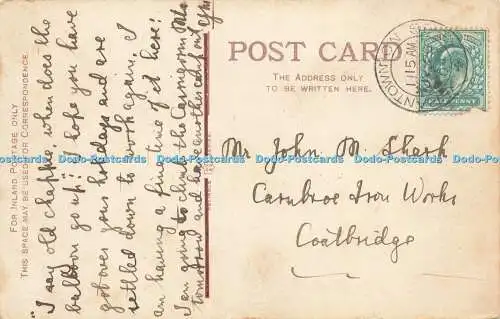 FOR INLAND POSTAGE ONLY
THIS SPACE MAY BE USED FOR CORRESPONDENCE.
"I say old chappie, when does the
balloon go up? I hope you have
got over your holidays and are
settled down to work again. I
am having a fine time of it here!
I am going to climb the Cairngorm Mts
tomorrow and have another camp out
POST CARD
THE ADDRESS ONLY
TO BE WRITTEN HERE.
11 15 AM
HALF PENNY
Mr John M. Shark
Carnbroe Iron Works
Coatbridge
Dodo-Postcards Dodo-Postcards Dodo-Postcards Dodo-Postcards Dodo-Postcards